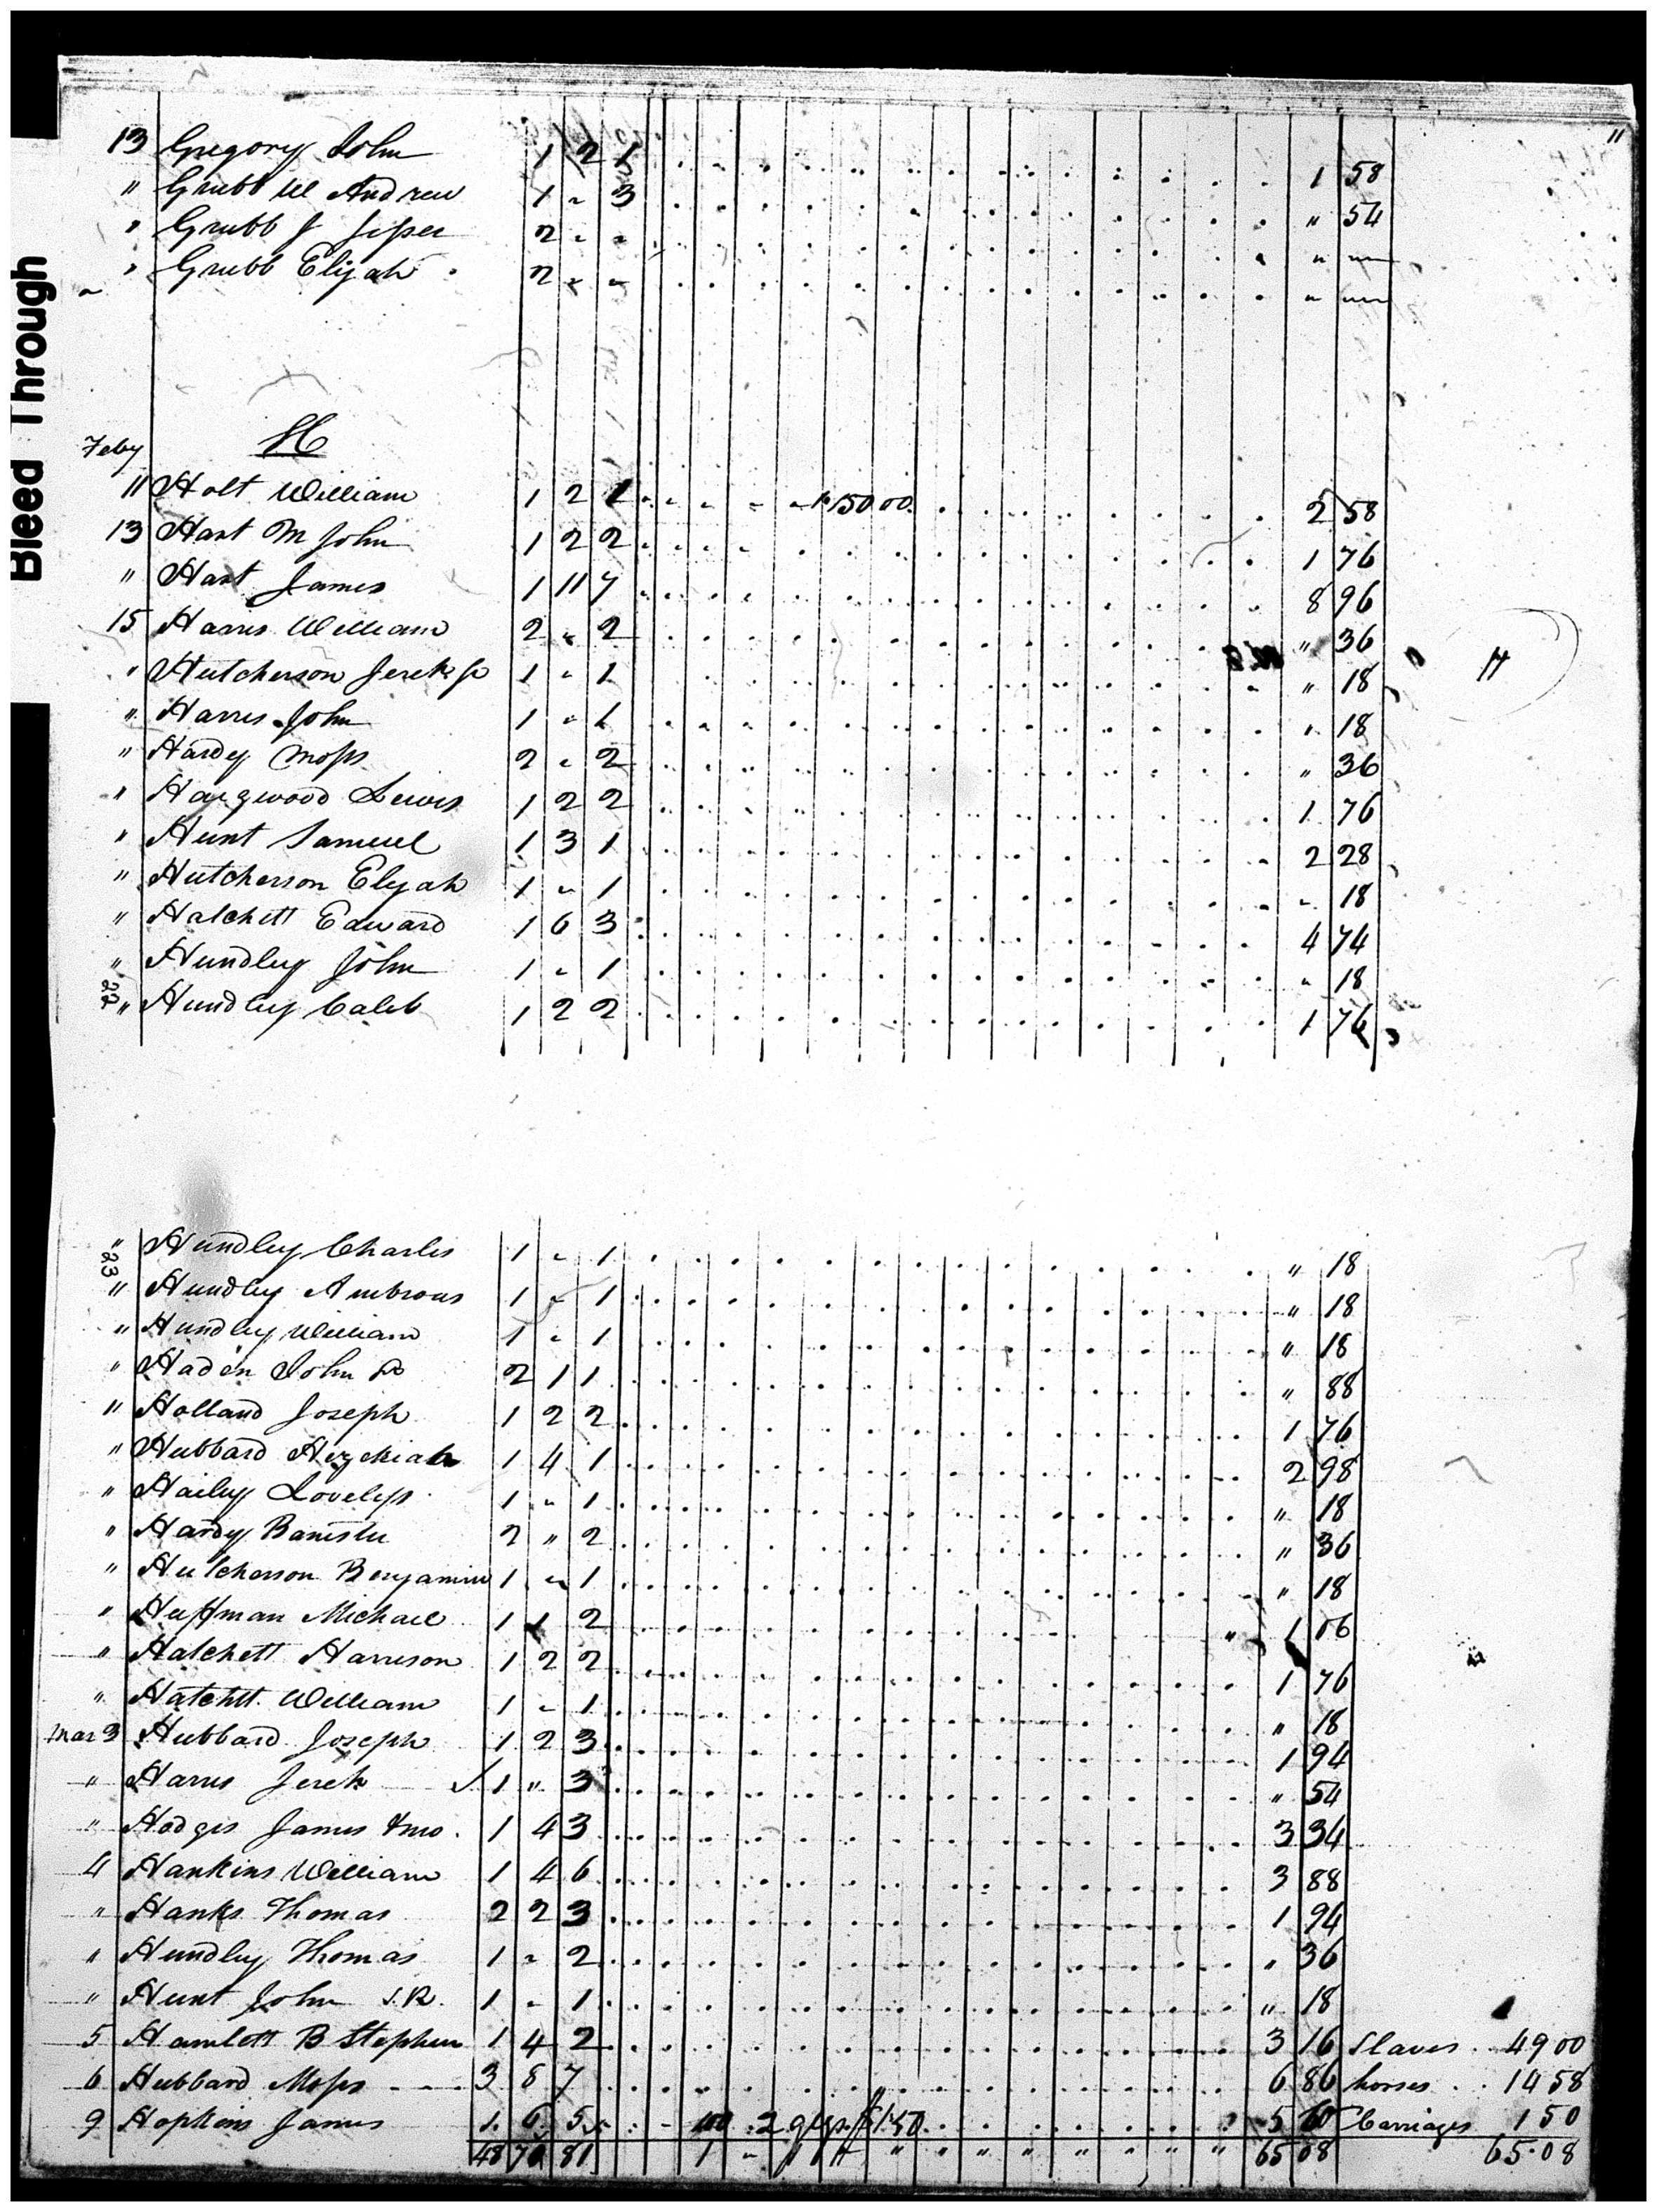 11
Bleed Through
13 Gregory John 1 2 1 1 58
" Grubb W Andrew 1 " 3 " 54
" Grubb J Jesper 2 " " " "
" Grubb Elijah 2 " " " "
Feby H
11 Holt William 1 2 1 1 " 150 00 2 58
13 Hart M John 1 2 2 1 76
" Hart James 1 11 7 8 96
15 Harris William 2 " 2 " 36
" Hutcherson Jerek 1 " 1 " 18
H
" Harris John 1 " 1 " 18
" Hardy Moses 2 " 2 " 36
" Haegwood Lewis 1 2 2 1 76
" Hunt Samuel 1 3 1 2 28
" Hutcherson Elijah 1 " 1 " 18
" Hatchett Edward 1 6 3 4 74
" Hundley John 1 " 1 " 18
22 " Hundley Caleb 1 2 2 1 76
" Hundley Charles 1 " 1 " 18
23 " Hundley Ambrous 1 " 1 " 18
" Hundley William 1 " 1 " 18
" Haden John 2 1 1 " 88
" Holland Joseph 1 2 2 1 76
" Hubbard Hezekiah 1 4 1 2 98
" Hailey Loveless 1 " 1 " 18
" Hardy Banister 2 " 2 " 36
" Hutcherson Benjamin 1 " 1 " 18
" Huffman Michael 1 1 2 " 1 06
" Hatchett Harrison 1 2 2 1 76
" Hatchett William 1 " 1 " 18
Mar 3 Hubbard Joseph 1 2 3 1 94
" Harris Jerek 1 " 3 " 54
" Hodges James 1 4 3 3 34
4 Hankins William 1 4 6 3 88
" Hanks Thomas 2 2 3 1 94
" Hundley Thomas 1 " 2 " 36
" Hunt John S.R. 1 " 1 " 18
5 Hamlett B Stephen 1 4 2 3 16 Slaves 49 00
6 Hubbard Moses 3 8 7 6 86 horses 14 58
9 Hopkins James 1 6 5 100 2 gigs $1.50 5 60 Carriages 1 50
48 70 81 1 " 1 " " " " " " " " 65 08 65.08